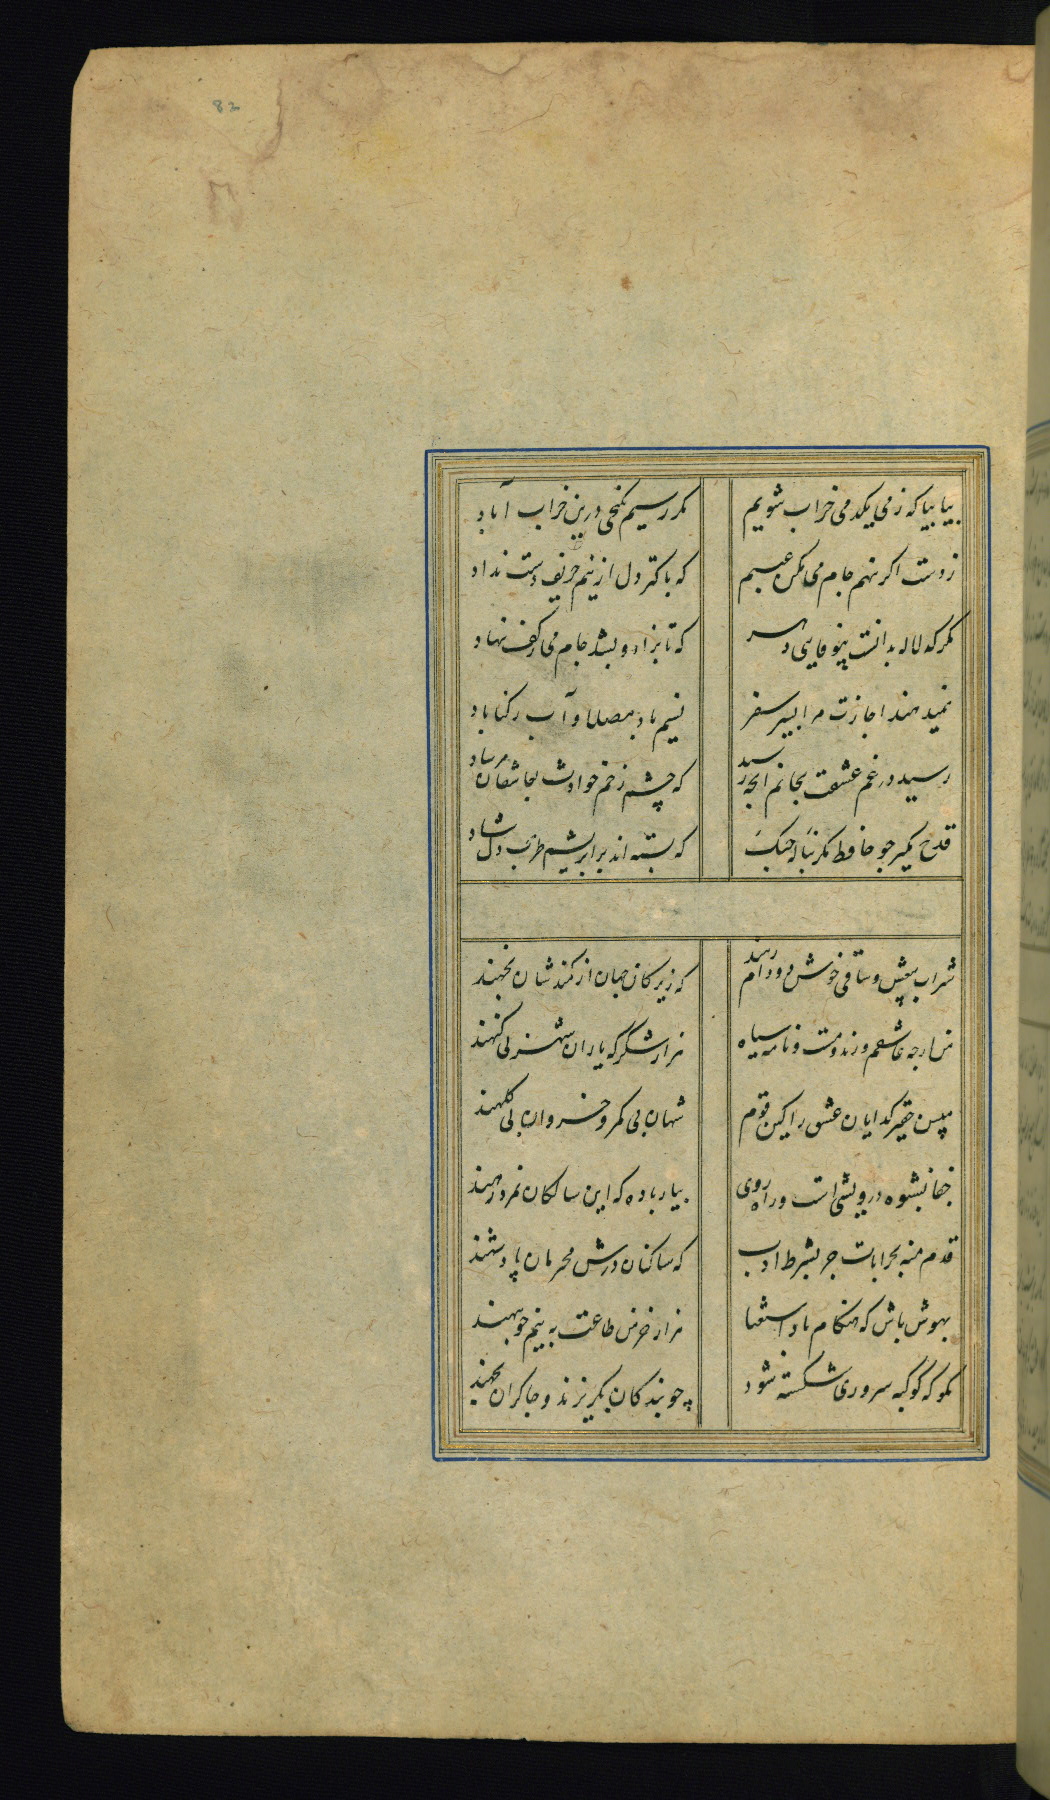 83
بیا بیا که ز می یکدمی خراب شویم مکر رسیم بکنجی درین خراب آباد
ز دست اکر ننهم جام می مکن عیبم که پاکتر دل ازینم حریف دست نداد
مکر که لاله بدانست بیوفایی دهر که تا بزاد و بشد جام می ز کف ننهاد
نمیدهند اجازت مرا بسیر سفر نسیم باد مصلا و آب رکناباد
رسید در غم عشقت بجانم آنچه رسید که چشم زخم حوادث بعاشقان مرساد
قدح مکیر چو حافظ مکر بناله چنک که بسته اند بر ابریشم طرب دل شاد
شراب بیغش و ساقی خوش دو دام رهند که زیرکان جهان از کمندشان نجهند
من ارچه عاشقم و رند و مست و نامه سیاه هزار شکر که یاران شهر بی کنهند
مبین حقیر کدایان عشق را کین قوم شهان بی کمر و خسروان بی کلهند
جفا نه شیوه درویشی است و راه روی بیار باده که این سالکان نه مرد رهند
قدم منه بخرابات جز بشرط ادب که ساکنان درش محرمان پادشهند
بهوش باش که هنکام باد استغنا هزار خرمن طاعت به نیم جو بنهند
مکو که کوکبه سروری شکسته شود چو بندکان بکریزند و چاکران بجهند